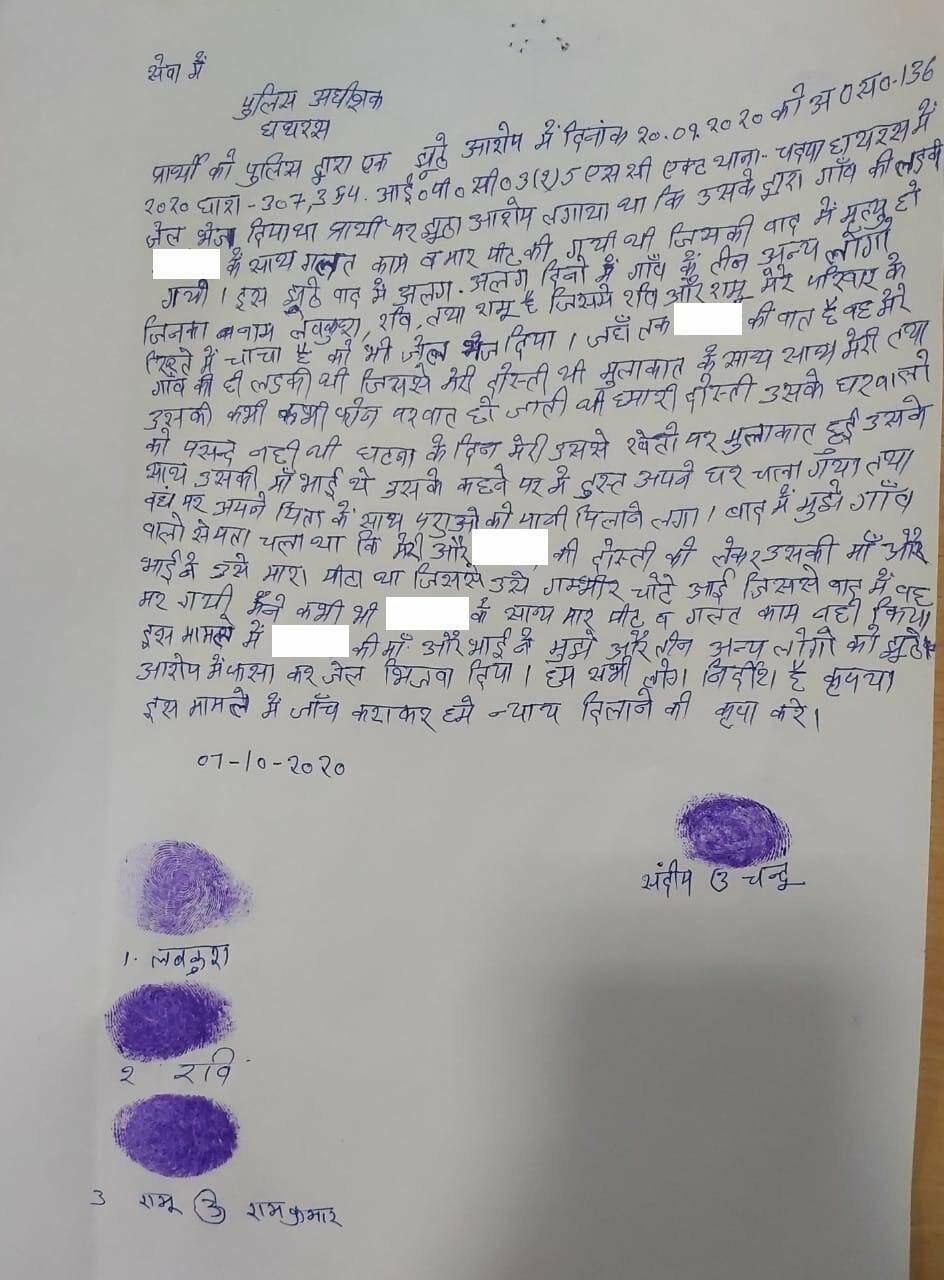 सेवा में
पुलिस अधीक्षक
हाथरस
प्रार्थी को पुलिस द्वारा एक झूठे आरोप में दिनांक २०.०९.२०२० को अ०स०-136
२०२० धारा-307, 354. आई०पी०सी० 3(2)5 एस सी एक्ट थाना- चंदपा हाथरस में
जेल भेज दिया था प्रार्थी पर झूठा आरोप लगाया था कि उसके द्वारा गाँव की लडकी
के साथ गलत काम व मार पीट की गयी थी जिसकी बाद में मृत्यु हो
गयी। इस झूठे वाद में अलग-अलग दिनो में गाँव के तीन अन्य लोगों
जिनका नाम लवकुश, रवि, तथा रामू है जिसमे रवि और रामू मेरे परिवार के
रिश्ते में चाचा है को भी जेल भेज दिया। जहाँ तक की बात है वह मेरे
गाँव की ही लडकी थी जिससे मेरी दोस्ती थी मुलाकात के साथ साथ मेरी तथा
उसकी कभी कभी फोन पर बात हो जाती थी हमारी दोस्ती उसके घरवालो
को पसन्द नही थी घटना के दिन मेरी उससे खेतो पर मुलाकात हुई उसके
साथ उसकी माँ भाई थे उसके कहने पर मे तुरन्त अपने घर चला गया तथा
वहं पर अपने पिता के साथ पशुओ को पानी पिलाने लगा। बाद में मुझे गाँव
वालो से पता चला था कि मेरी और की दोस्ती को लेकर उसकी माँ और
भाई ने उसे मारा पीटा था जिससे उसे गम्भीर चोटे आई जिससे बाद में वह
मर गयी मैने कभी भी के साथ मार पीट व गलत काम नही किया
इस मामले में की माँ और भाई ने मुझे और तीन अन्य लोगो को झूठे
आरोप मे फसा कर जेल भिजवा दिया। हम सभी लोग निर्दोश है कृपया
इस मामले में जाँच कराकर हमे न्याय दिलाने की कृपा करे।
07-10-2020
संदीप उ चन्दू
1. लवकुश
२ रवि
3 रामू उ रामकुमार